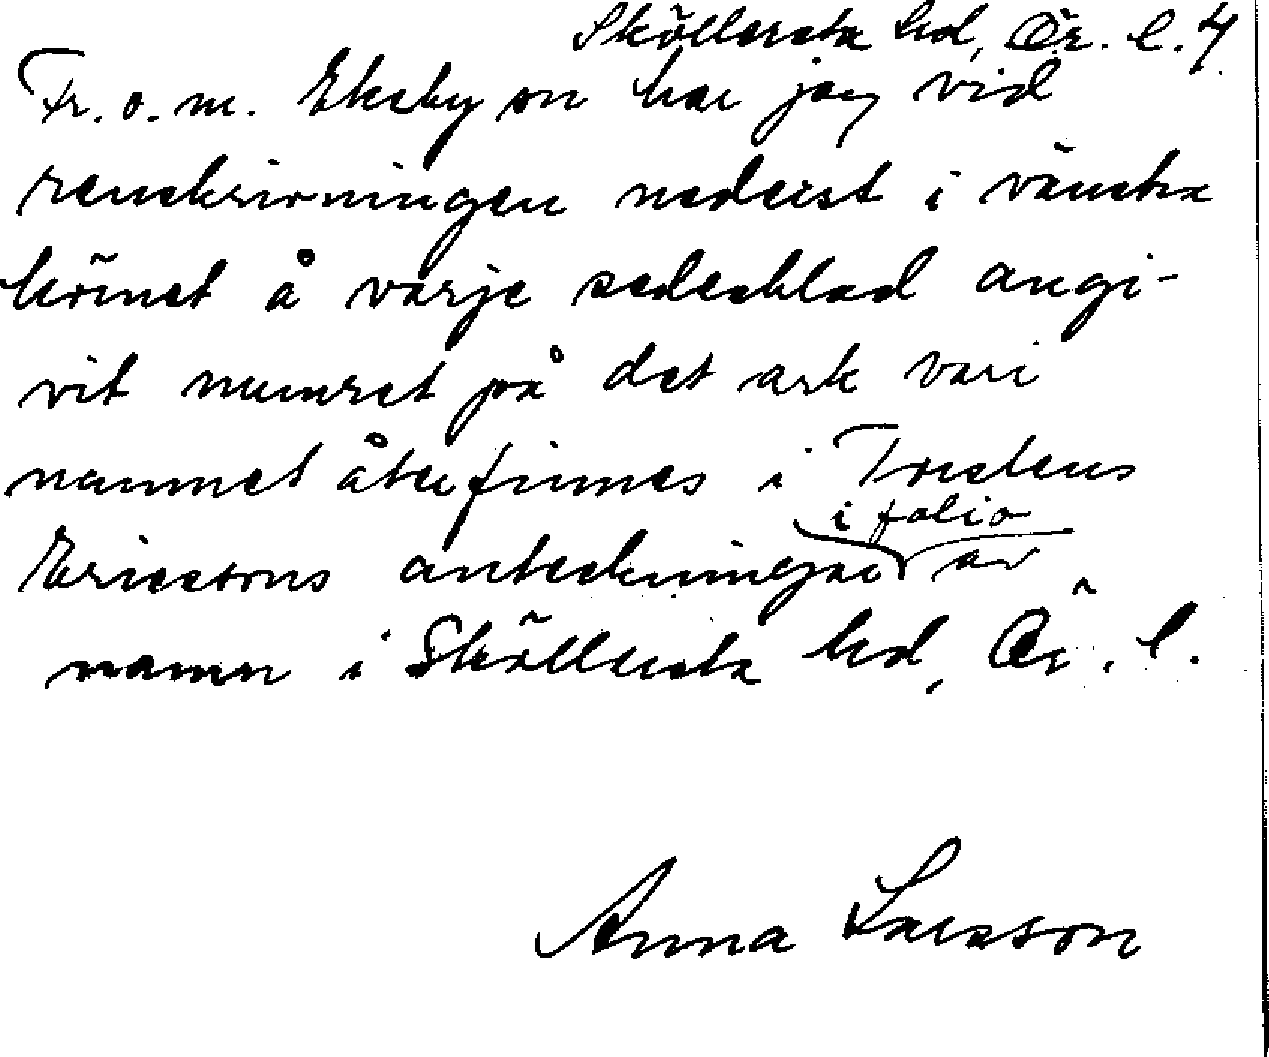 Sköllersta hd, Ör. l. 4
Fr. o. m. Ekeby sn har jag vid
renskrivningen nederst i vänstra
hörnet å varje sedesblad angi-
vit numret på det ark vari
namnet återfinnes i Torstens
i folio
Ericssons anteckningar av
namn i Sköllersta hd, Ör. l.
Anna Larsson